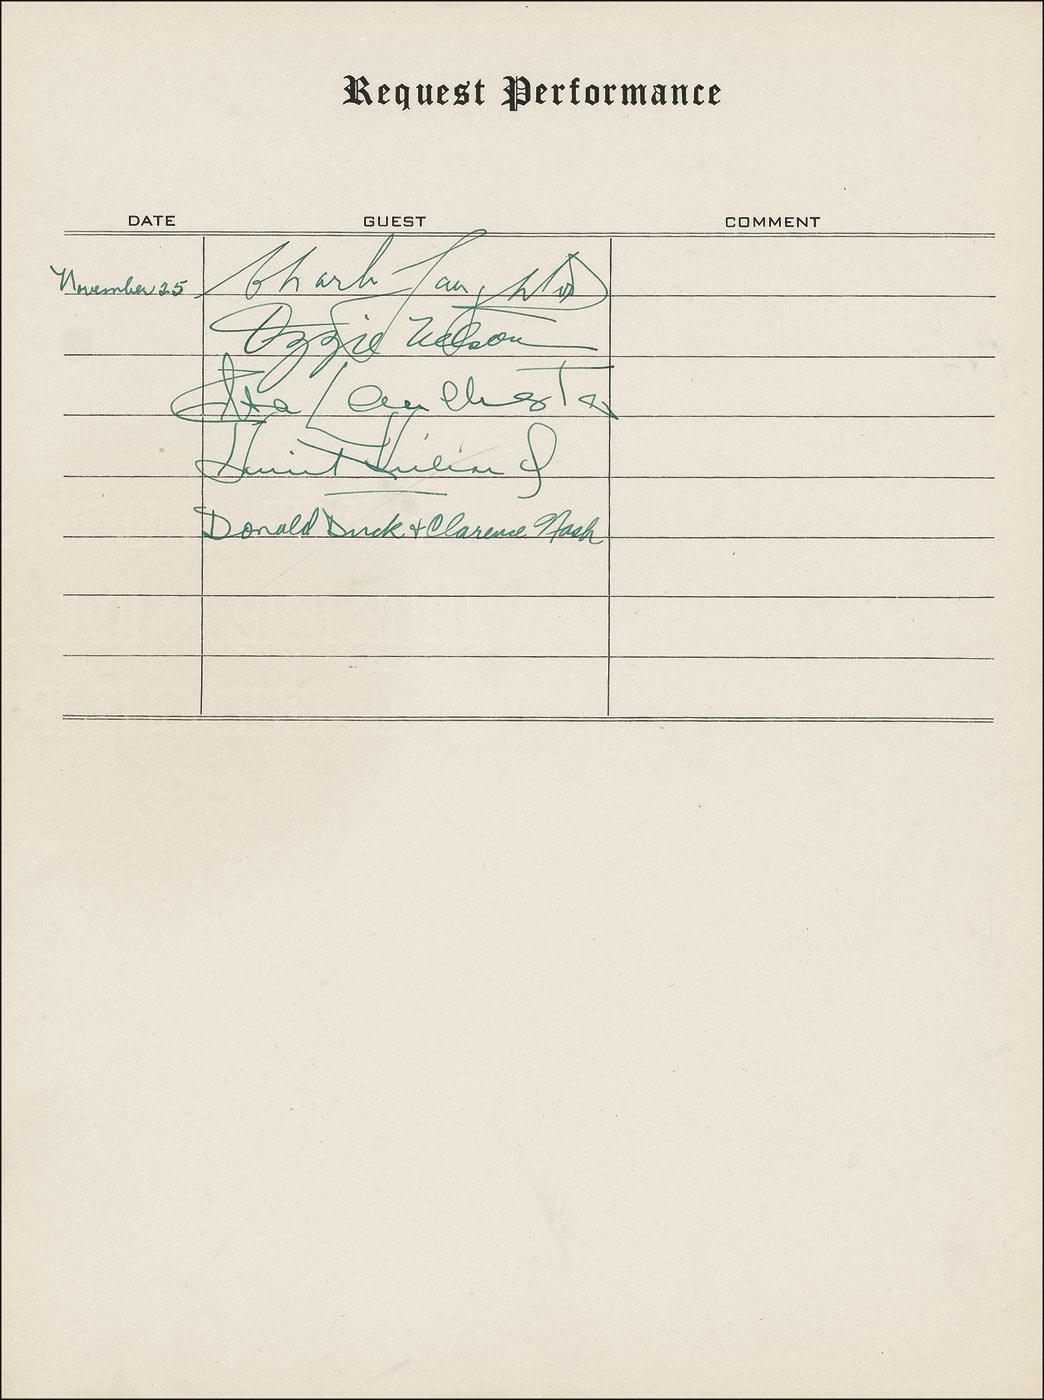 Request Performance
DATE GUEST COMMENT
November 25 Charles Laughton
Ozzie Nelson
Elsa Lanchester
Harriet Hilliard
Donald Duck + Clarence Nash